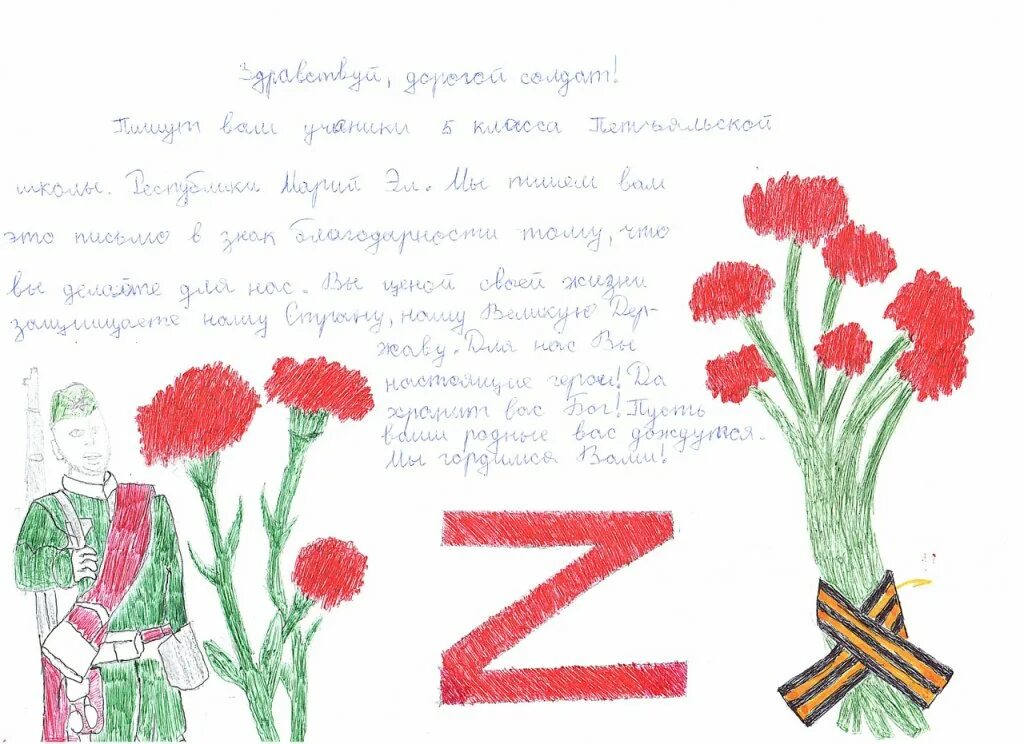 Здравствуй, дорогой солдат!
Пишут вам ученики 5 класса Петъяльской
школы. Республики Марий Эл. Мы пишем вам
это письмо в знак благодарности тому, что
вы делайте для нас. Вы ценой своей жизни
защищаете нашу Страну, нашу Великую Дер-
жаву. Для нас Вы
настоящие герои! Да
хранит вас Бог! Пусть
ваши родные вас дождутся.
Мы гордимся Вами!
Z